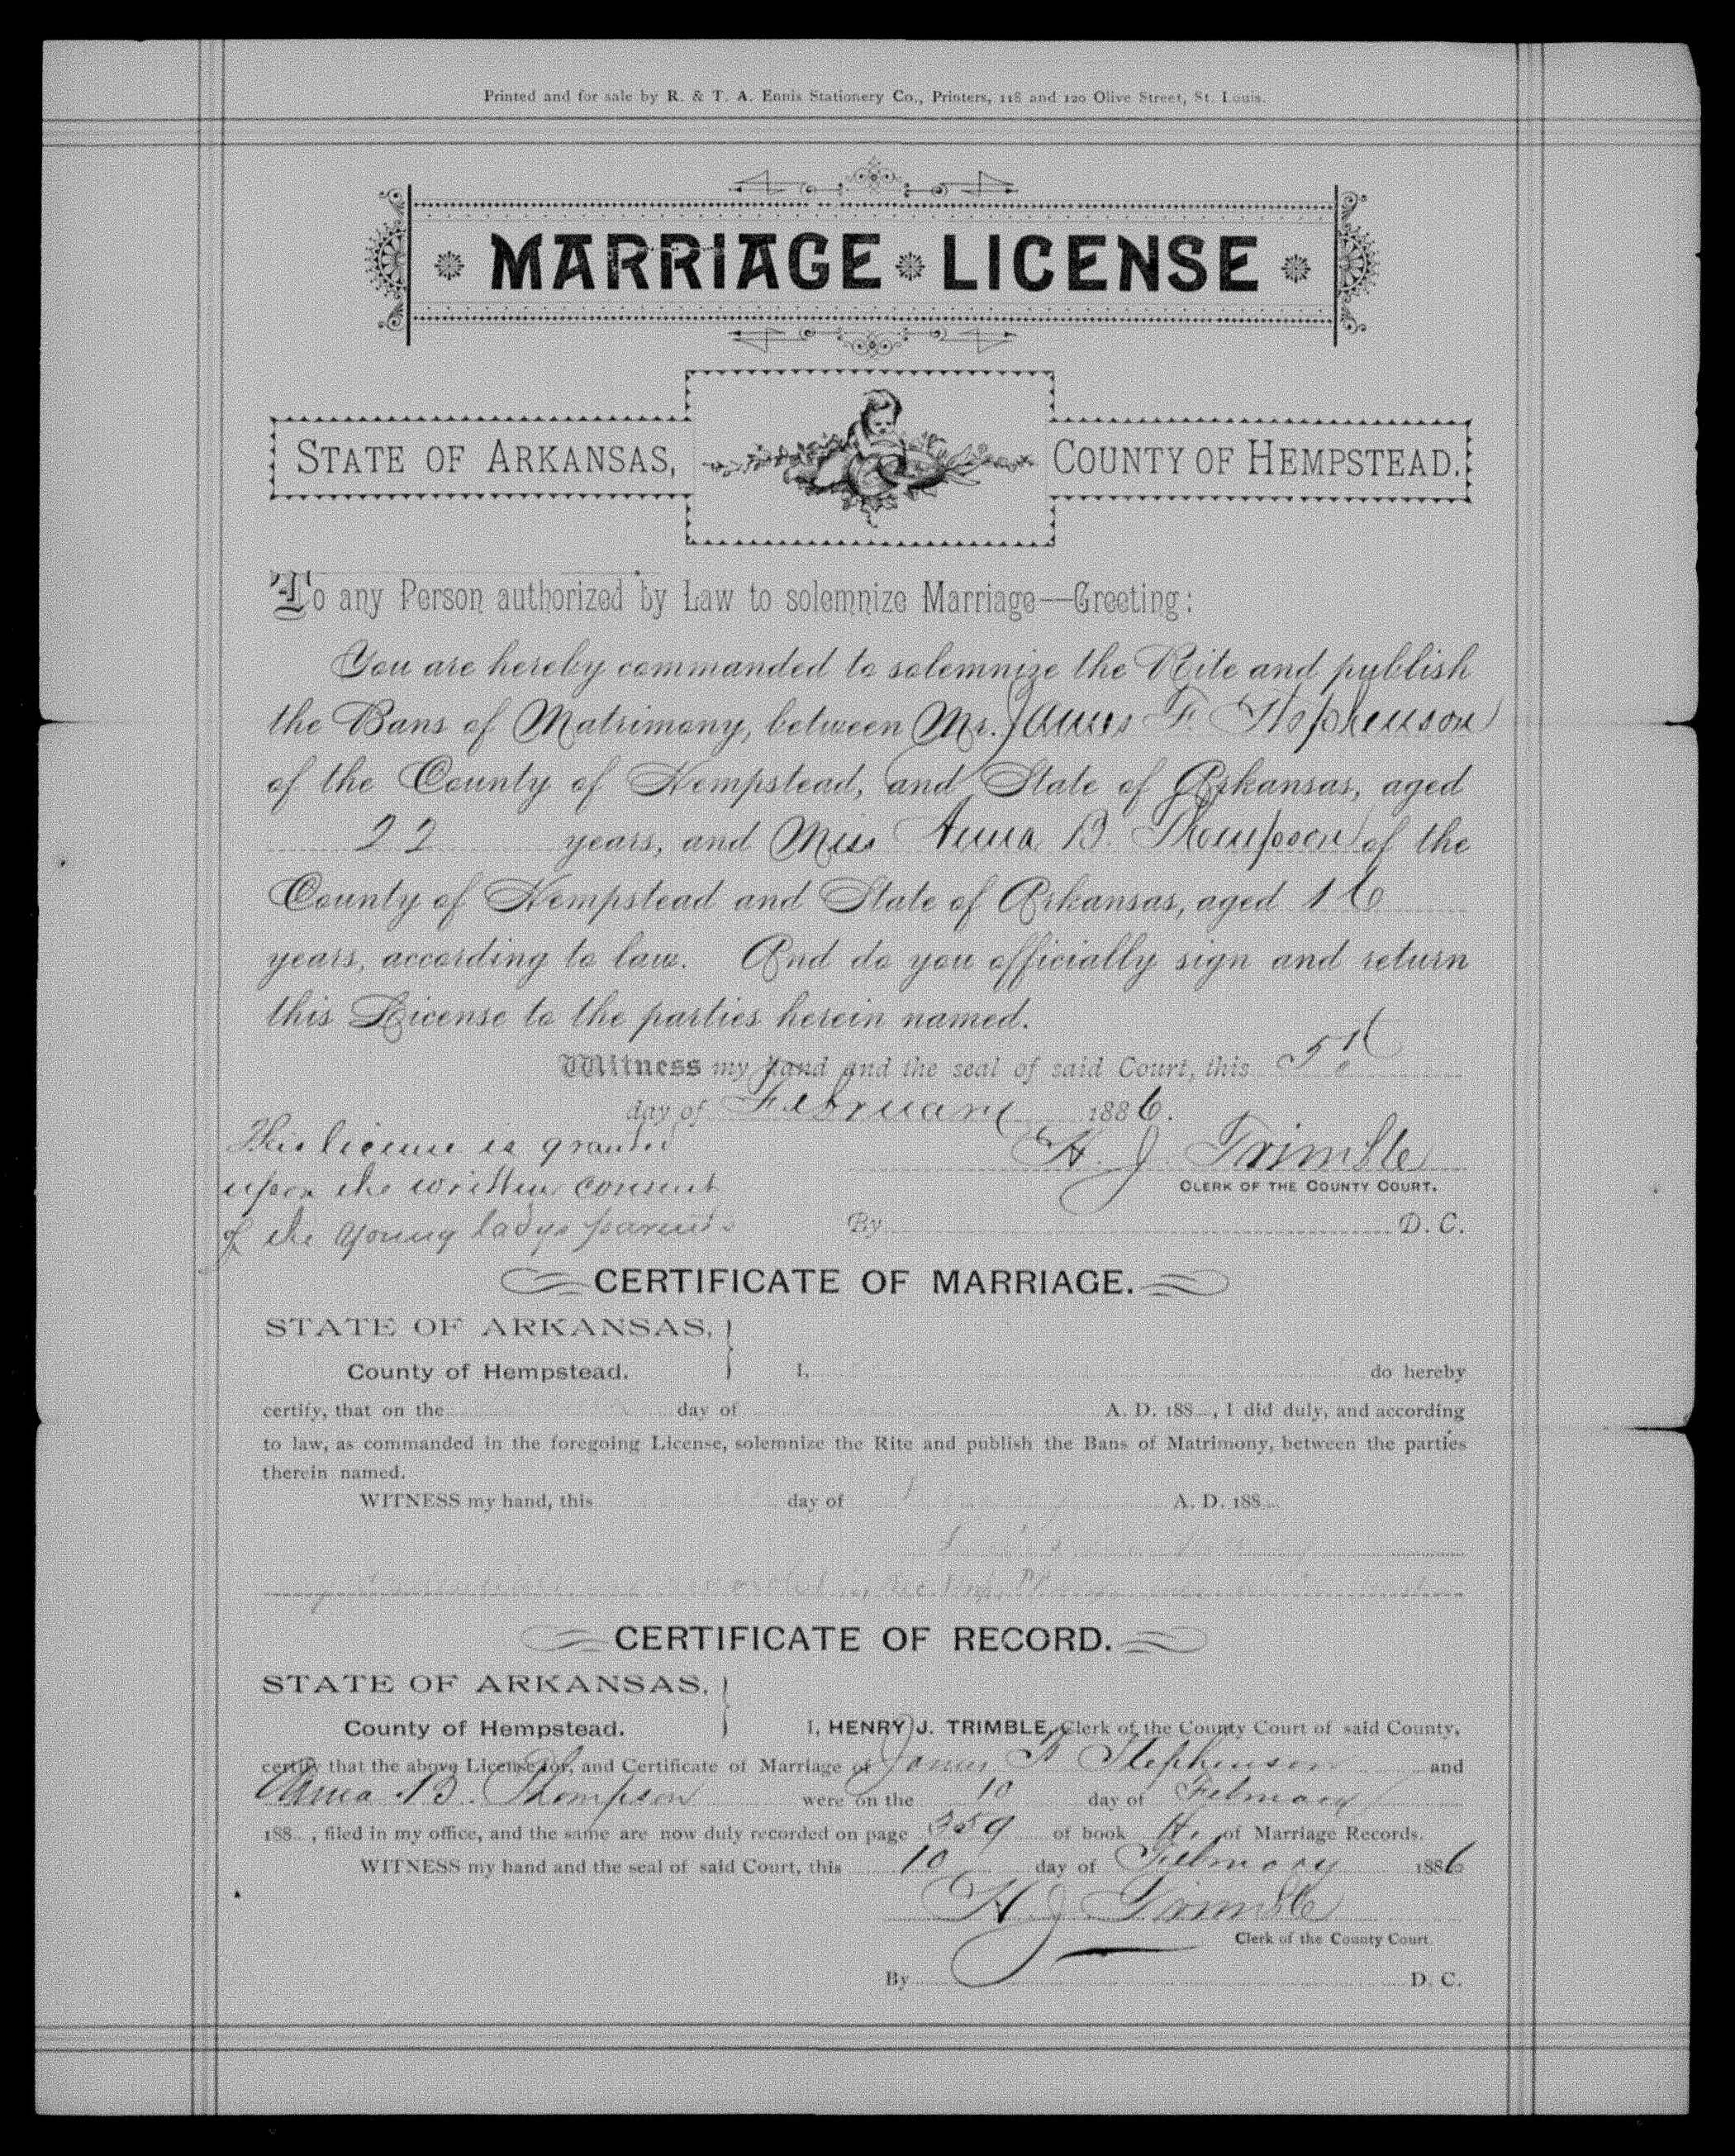 Printed and for sale by R. & T. A. Ennis Stationery Co., Printers, 118 and 120 Olive Street, St. Louis.
MARRIAGE LICENSE
STATE OF ARKANSAS, COUNTY OF HEMPSTEAD.
To any Person authorized by Law to solemnize Marriage—Greeting:
You are hereby commanded to solemnize the Rite and publish
the Bans of Matrimony, between Mr. James F. Stephenson
of the County of Hempstead, and State of Arkansas, aged
22 years, and Miss Anna B. Thompson of the
County of Hempstead and State of Arkansas, aged 16
years, according to law. And do you officially sign and return
this License to the parties herein named.
Witness my hand and the seal of said Court, this 5th
day of February 1886.
This license is granted
upon the written consent
of the young ladys parents
H. J. Trimble
CLERK OF THE COUNTY COURT.
By D. C.
CERTIFICATE OF MARRIAGE.
STATE OF ARKANSAS,
County of Hempstead. I, do hereby
certify, that on the day of A. D. 188 , I did duly, and according
to law, as commanded in the foregoing License, solemnize the Rite and publish the Bans of Matrimony, between the parties
therein named.
WITNESS my hand, this day of A. D. 188
CERTIFICATE OF RECORD.
STATE OF ARKANSAS,
County of Hempstead. I, HENRY J. TRIMBLE, Clerk of the County Court of said County,
certify that the above License for, and Certificate of Marriage of James F Stephenson and
Anna B. Thompson were on the 10 day of February
188 , filed in my office, and the same are now duly recorded on page 359 of book H. of Marriage Records.
WITNESS my hand and the seal of said Court, this 10 day of February 1886
H J Trimble
Clerk of the County Court.
By D. C.